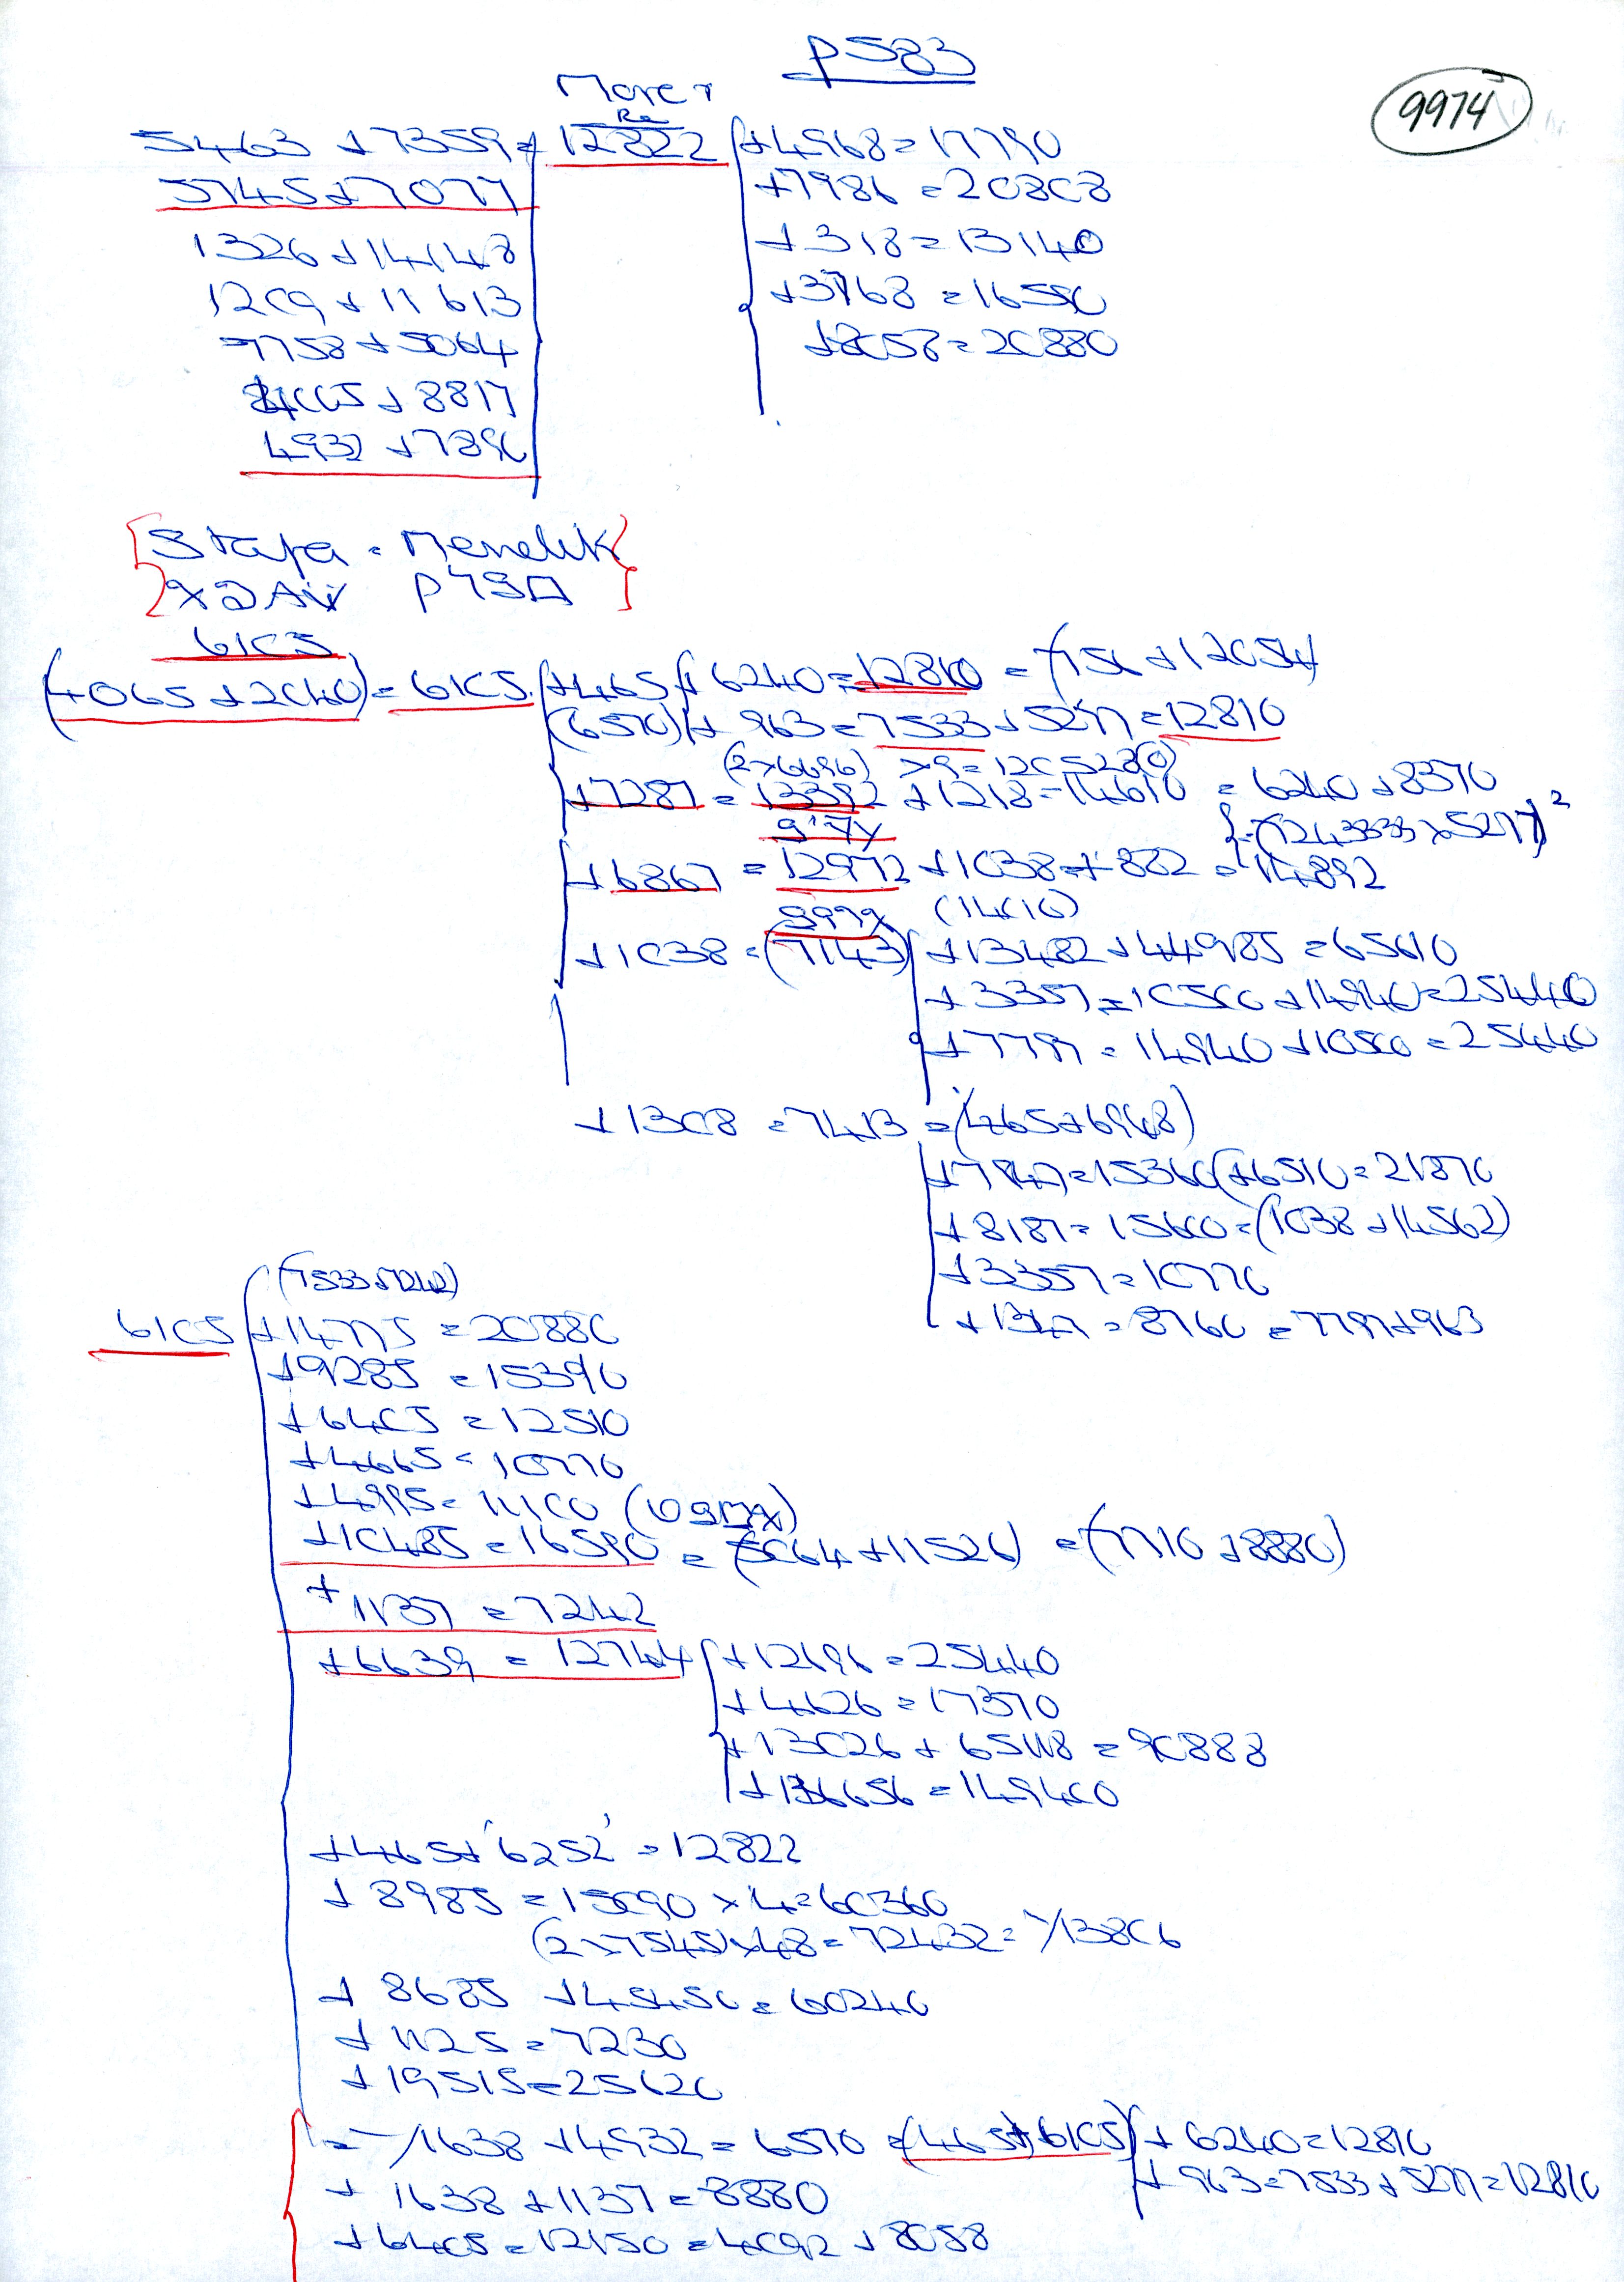 P583
9974
More +
Re
5463 + 7359 = 12822 + 4968 = 17790
5745 + 7077 + 7986 = 20808
1326 + 14148 + 318 = 13140
1209 + 11613 + 3768 = 16590
7758 + 5064 + 8058 = 20880
4005 + 8817
4932 + 7890
6105
(4065 + 2040) = 6105 + 465 + 6240 = 12810 = 756 + 12054
(6570) + 963 = 7533 + 5277 = 12810
(2 × 6696) × 9 = 120528(0)
+ 7287 = 13392 + 1218 = 14610 = 6240 + 8370
+ 6867 = 12972 + 1038 + 882 = 14892
(14010)
+ 1038 = (7143) + 13482 + 44985 = 65610
+ 3357 = 10500 + 14940 = 25440
+ 7797 = 14940 + 10500 = 25440
+ 1308 = 7413 = (465 + 6948)
+ 7947 = 15360 (+ 6510 = 21870
+ 8187 = 15600 = (1038 + 14562)
+ 3357 = 10770
+ 1347 = 8760 = 7797 + 963
(7533 + 7242)
6105 + 14775 = 20880
+ 9285 = 15390
+ 6405 = 12510
+ 4665 = 10770
+ 4995 = 11100
+ 10485 = 16590 = (5064 + 11526) = (7710 + 8880)
+ 1137 = 7242
+ 6639 = 12744 + 12696 = 25440
+ 4626 = 17370
+ 13026 + 65118 = 90888
+ 136656 = 149400
+ 465 + '6252' = 12822
+ 8985 = 15090 × 4 = 60360
(2 × 7545) × 48 = 72432 = 713806
+ 8685 + 45450 = 60240
+ 1125 = 7230
+ 19515 = 25620
= 1638 + 4932 = 6570 = (465 + 6105) + 6240 = 12810
+ 1638 + 1137 = 8880 + 963 = 7533 + 5277 = 12810
+ 6405 = 12150 = 4092 + 8058